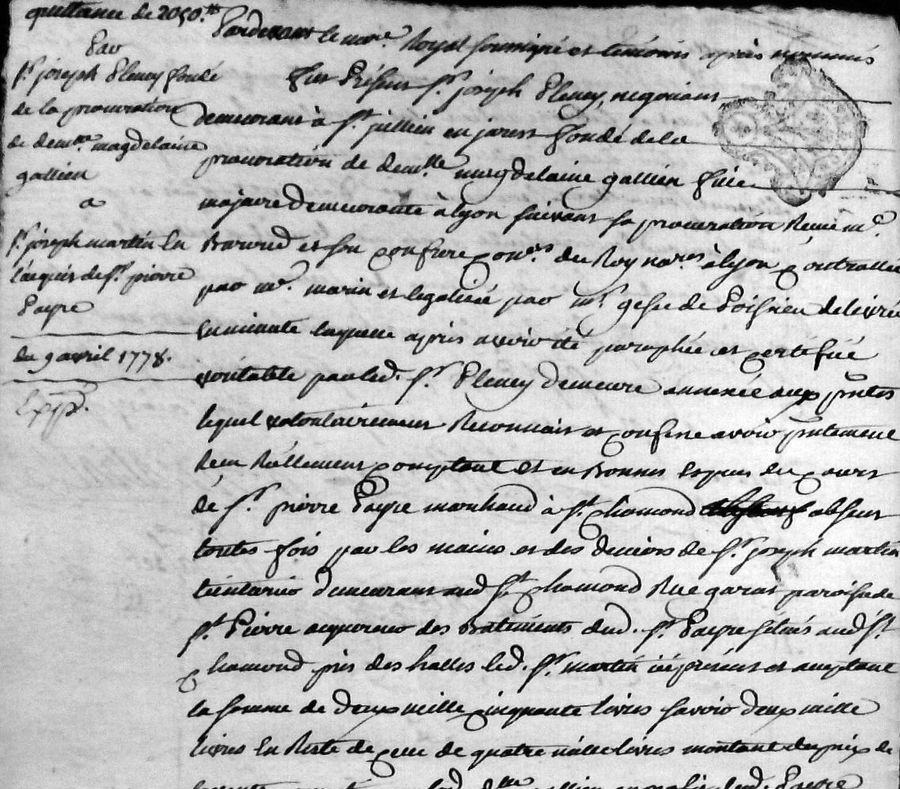 quittance de 2050.tt
par
sr. joseph Fleury fondé
de la procuration
de demlle. magdelaine
gallien
a
sr. joseph martin en
l'acquit de sr. pierre
payre
du 9 avril 1778.
Pardevant le nore. Royal soussigné et temoins après nommés
fut présent sr. joseph Fleury, negociant
demeurant à st. jullien en jarest fondé de la
procuration de demlle. magdelaine gallien fille
majeure demeurante à lyon suivant sa procuration Reçue me.
et son confrere coners. du Roy nores. à lyon controllée
par mr. marin et legalisée par mr. de delivrée
en minute laquelle après avoir été paraphée et certifiée
véritable par led. sr. Fleury demeure annexée aux pntes
lequel volontairement Reconnait et confesse avoir pntement
Reçu Réellement comptant et en bonnes espèces du cours
de sr. pierre payre marchand à st. chamond absent
toutes fois par les mains et des deniers de sr. joseph martin
teinturier demeurant aud. st. chamond Rue garat paroisse de
st. Pierre acquereur des batiments dud. sr. payre situés aud. st.
chamond près des halles led. sr. martin icy présent et acceptant
la somme de deux mille cinquante livres savoir deux mille
livres en Reste de celle de quatre mille livres montant du prix de